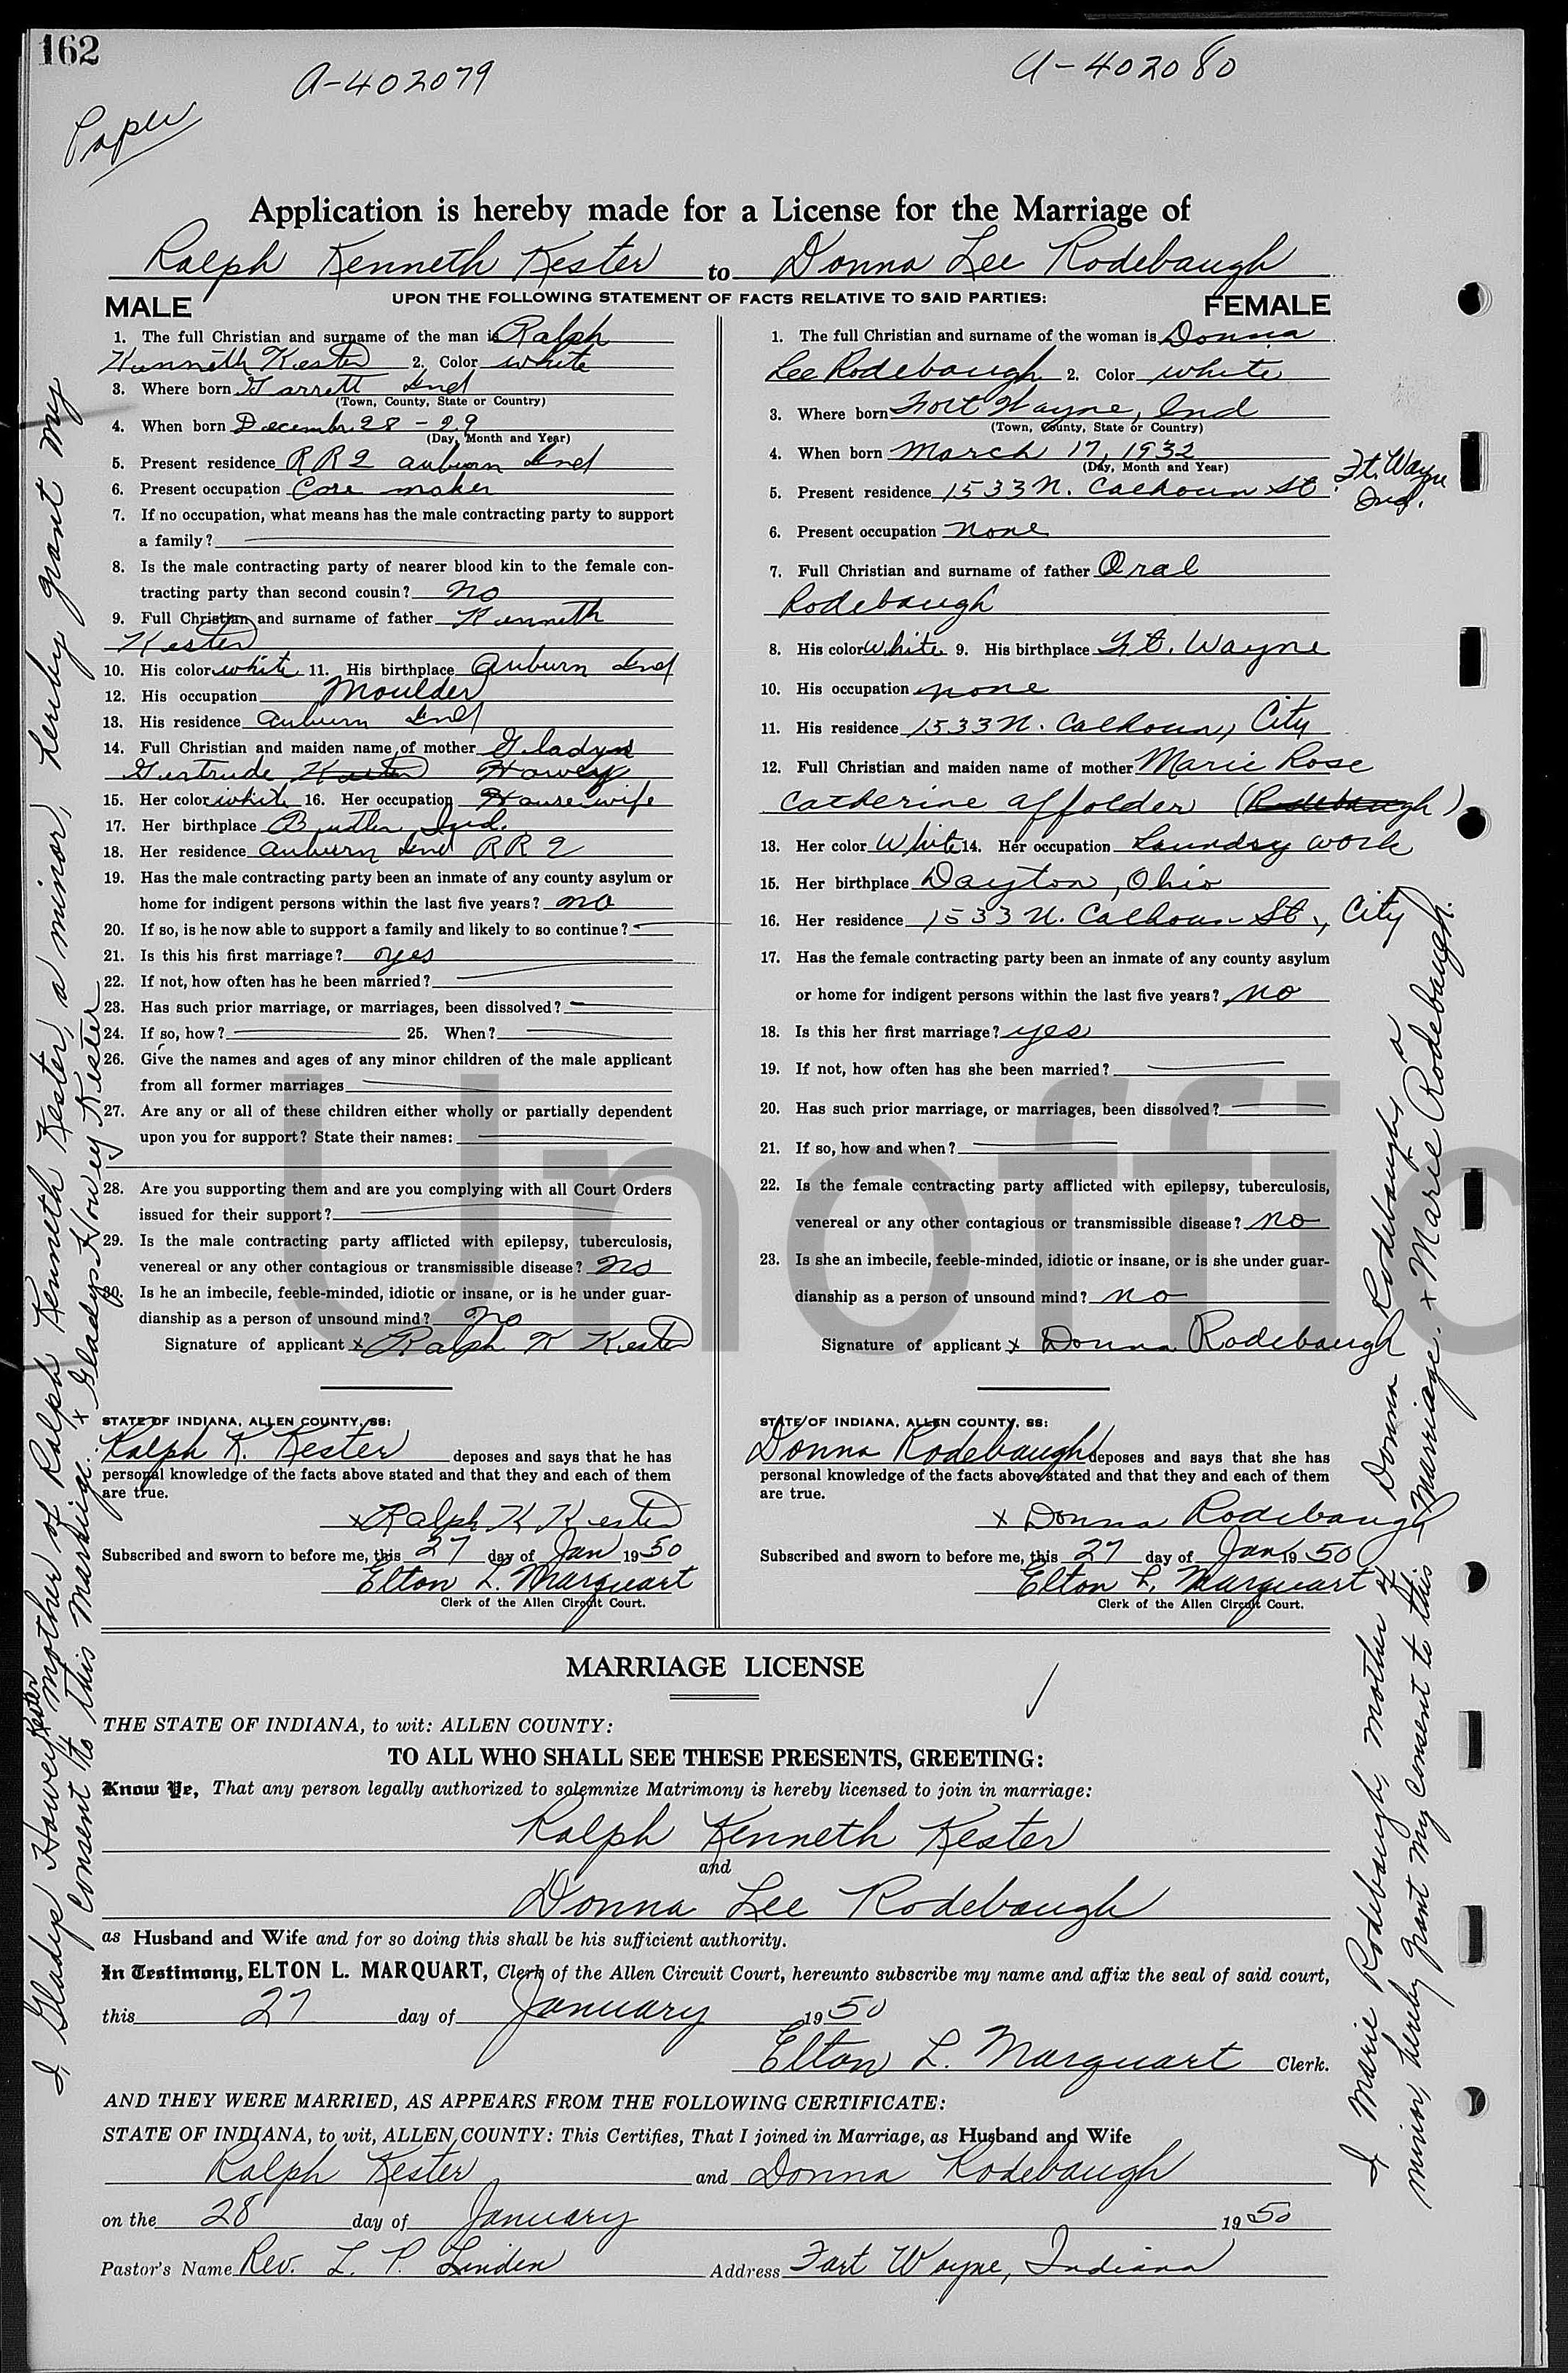 162
A-402079
A-402080
Paper
Application is hereby made for a License for the Marriage of
Ralph Kenneth Kester to Donna Lee Rodebaugh
MALE UPON THE FOLLOWING STATEMENT OF FACTS RELATIVE TO SAID PARTIES: FEMALE
1. The full Christian and surname of the man is Ralph
Kenneth Kester 2. Color white
3. Where born Garrett Ind
(Town, County, State or Country)
4. When born December 28 - 29
(Day, Month and Year)
5. Present residence RR2 auburn Ind
6. Present occupation Core maker
7. If no occupation, what means has the male contracting party to support
a family?
8. Is the male contracting party of nearer blood kin to the female con-
tracting party than second cousin? no
9. Full Christian and surname of father Kenneth
Kester
10. His color white 11. His birthplace Auburn Ind
12. His occupation Moulder
13. His residence Auburn Ind
14. Full Christian and maiden name of mother Gladys
Gertrude Kester Howey
15. Her color white 16. Her occupation Housewife
17. Her birthplace Butler, Ind.
18. Her residence Auburn Ind RR2
19. Has the male contracting party been an inmate of any county asylum or
home for indigent persons within the last five years? no
20. If so, is he now able to support a family and likely to so continue?
21. Is this his first marriage? yes
22. If not, how often has he been married?
23. Has such prior marriage, or marriages, been dissolved?
24. If so, how? 25. When?
26. Give the names and ages of any minor children of the male applicant
from all former marriages
27. Are any or all of these children either wholly or partially dependent
upon you for support? State their names:
28. Are you supporting them and are you complying with all Court Orders
issued for their support?
29. Is the male contracting party afflicted with epilepsy, tuberculosis,
venereal or any other contagious or transmissible disease? no
30. Is he an imbecile, feeble-minded, idiotic or insane, or is he under guar-
dianship as a person of unsound mind? no
Signature of applicant x Ralph K Kester
STATE OF INDIANA, ALLEN COUNTY, SS:
Ralph K. Kester deposes and says that he has
personal knowledge of the facts above stated and that they and each of them
are true.
x Ralph K Kester
Subscribed and sworn to before me, this 27 day of Jan 1950
Elton L. Marquart
Clerk of the Allen Circuit Court.
1. The full Christian and surname of the woman is Donna
Lee Rodebaugh 2. Color white
3. Where born Fort Wayne, Ind
(Town, County, State or Country)
4. When born March 17, 1932
(Day, Month and Year)
5. Present residence 1533 N. Calhoun St. Ft. Wayne
Ind.
6. Present occupation none
7. Full Christian and surname of father Oral
Rodebaugh
8. His color white 9. His birthplace Ft. Wayne
10. His occupation none
11. His residence 1533 N. Calhoun, City
12. Full Christian and maiden name of mother Marie Rose
Catherine Affolder (Rodebaugh)
13. Her color White 14. Her occupation Laundry work
15. Her birthplace Dayton, Ohio
16. Her residence 1533 N. Calhoun St., City
17. Has the female contracting party been an inmate of any county asylum
or home for indigent persons within the last five years? no
18. Is this her first marriage? yes
19. If not, how often has she been married?
20. Has such prior marriage, or marriages, been dissolved?
21. If so, how and when?
22. Is the female contracting party afflicted with epilepsy, tuberculosis,
venereal or any other contagious or transmissible disease? no
23. Is she an imbecile, feeble-minded, idiotic or insane, or is she under guar-
dianship as a person of unsound mind? no
Signature of applicant x Donna Rodebaugh
STATE OF INDIANA, ALLEN COUNTY, SS:
Donna Rodebaugh deposes and says that she has
personal knowledge of the facts above stated and that they and each of them
are true.
x Donna Rodebaugh
Subscribed and sworn to before me, this 27 day of Jan 1950
Elton L. Marquart
Clerk of the Allen Circuit Court.
MARRIAGE LICENSE
THE STATE OF INDIANA, to wit: ALLEN COUNTY:
TO ALL WHO SHALL SEE THESE PRESENTS, GREETING:
Know Ye, That any person legally authorized to solemnize Matrimony is hereby licensed to join in marriage:
Ralph Kenneth Kester
and
Donna Lee Rodebaugh
as Husband and Wife and for so doing this shall be his sufficient authority.
In Testimony, ELTON L. MARQUART, Clerk of the Allen Circuit Court, hereunto subscribe my name and affix the seal of said court,
this 27 day of January 1950
Elton L. Marquart Clerk.
AND THEY WERE MARRIED, AS APPEARS FROM THE FOLLOWING CERTIFICATE:
STATE OF INDIANA, to wit, ALLEN COUNTY: This Certifies, That I joined in Marriage, as Husband and Wife
Ralph Kester and Donna Rodebaugh
on the 28 day of January 1950
Pastor's Name Rev. L. P. Linden Address Fort Wayne, Indiana
I Gladys Howey Kester mother of Ralph Kenneth Kester, a minor, hereby grant my
Consent to this Marriage. x Gladys Howey Kester
I Marie Rodebaugh, mother of Donna Rodebaugh, a
minor, hereby grant my consent to this marriage. x Marie Rodebaugh.
Unoffic